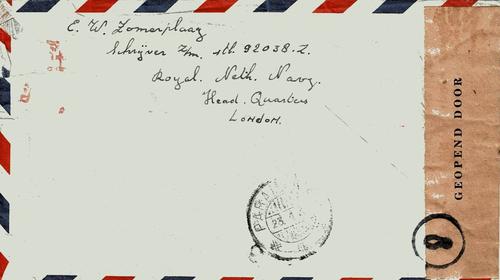 E. W. Zomerplaag
Schrijver Z/m. stb. 92038. Z.
Royal. Neth. Navy.
Head. Quarters
LONDON.
GEOPEND DOOR
8